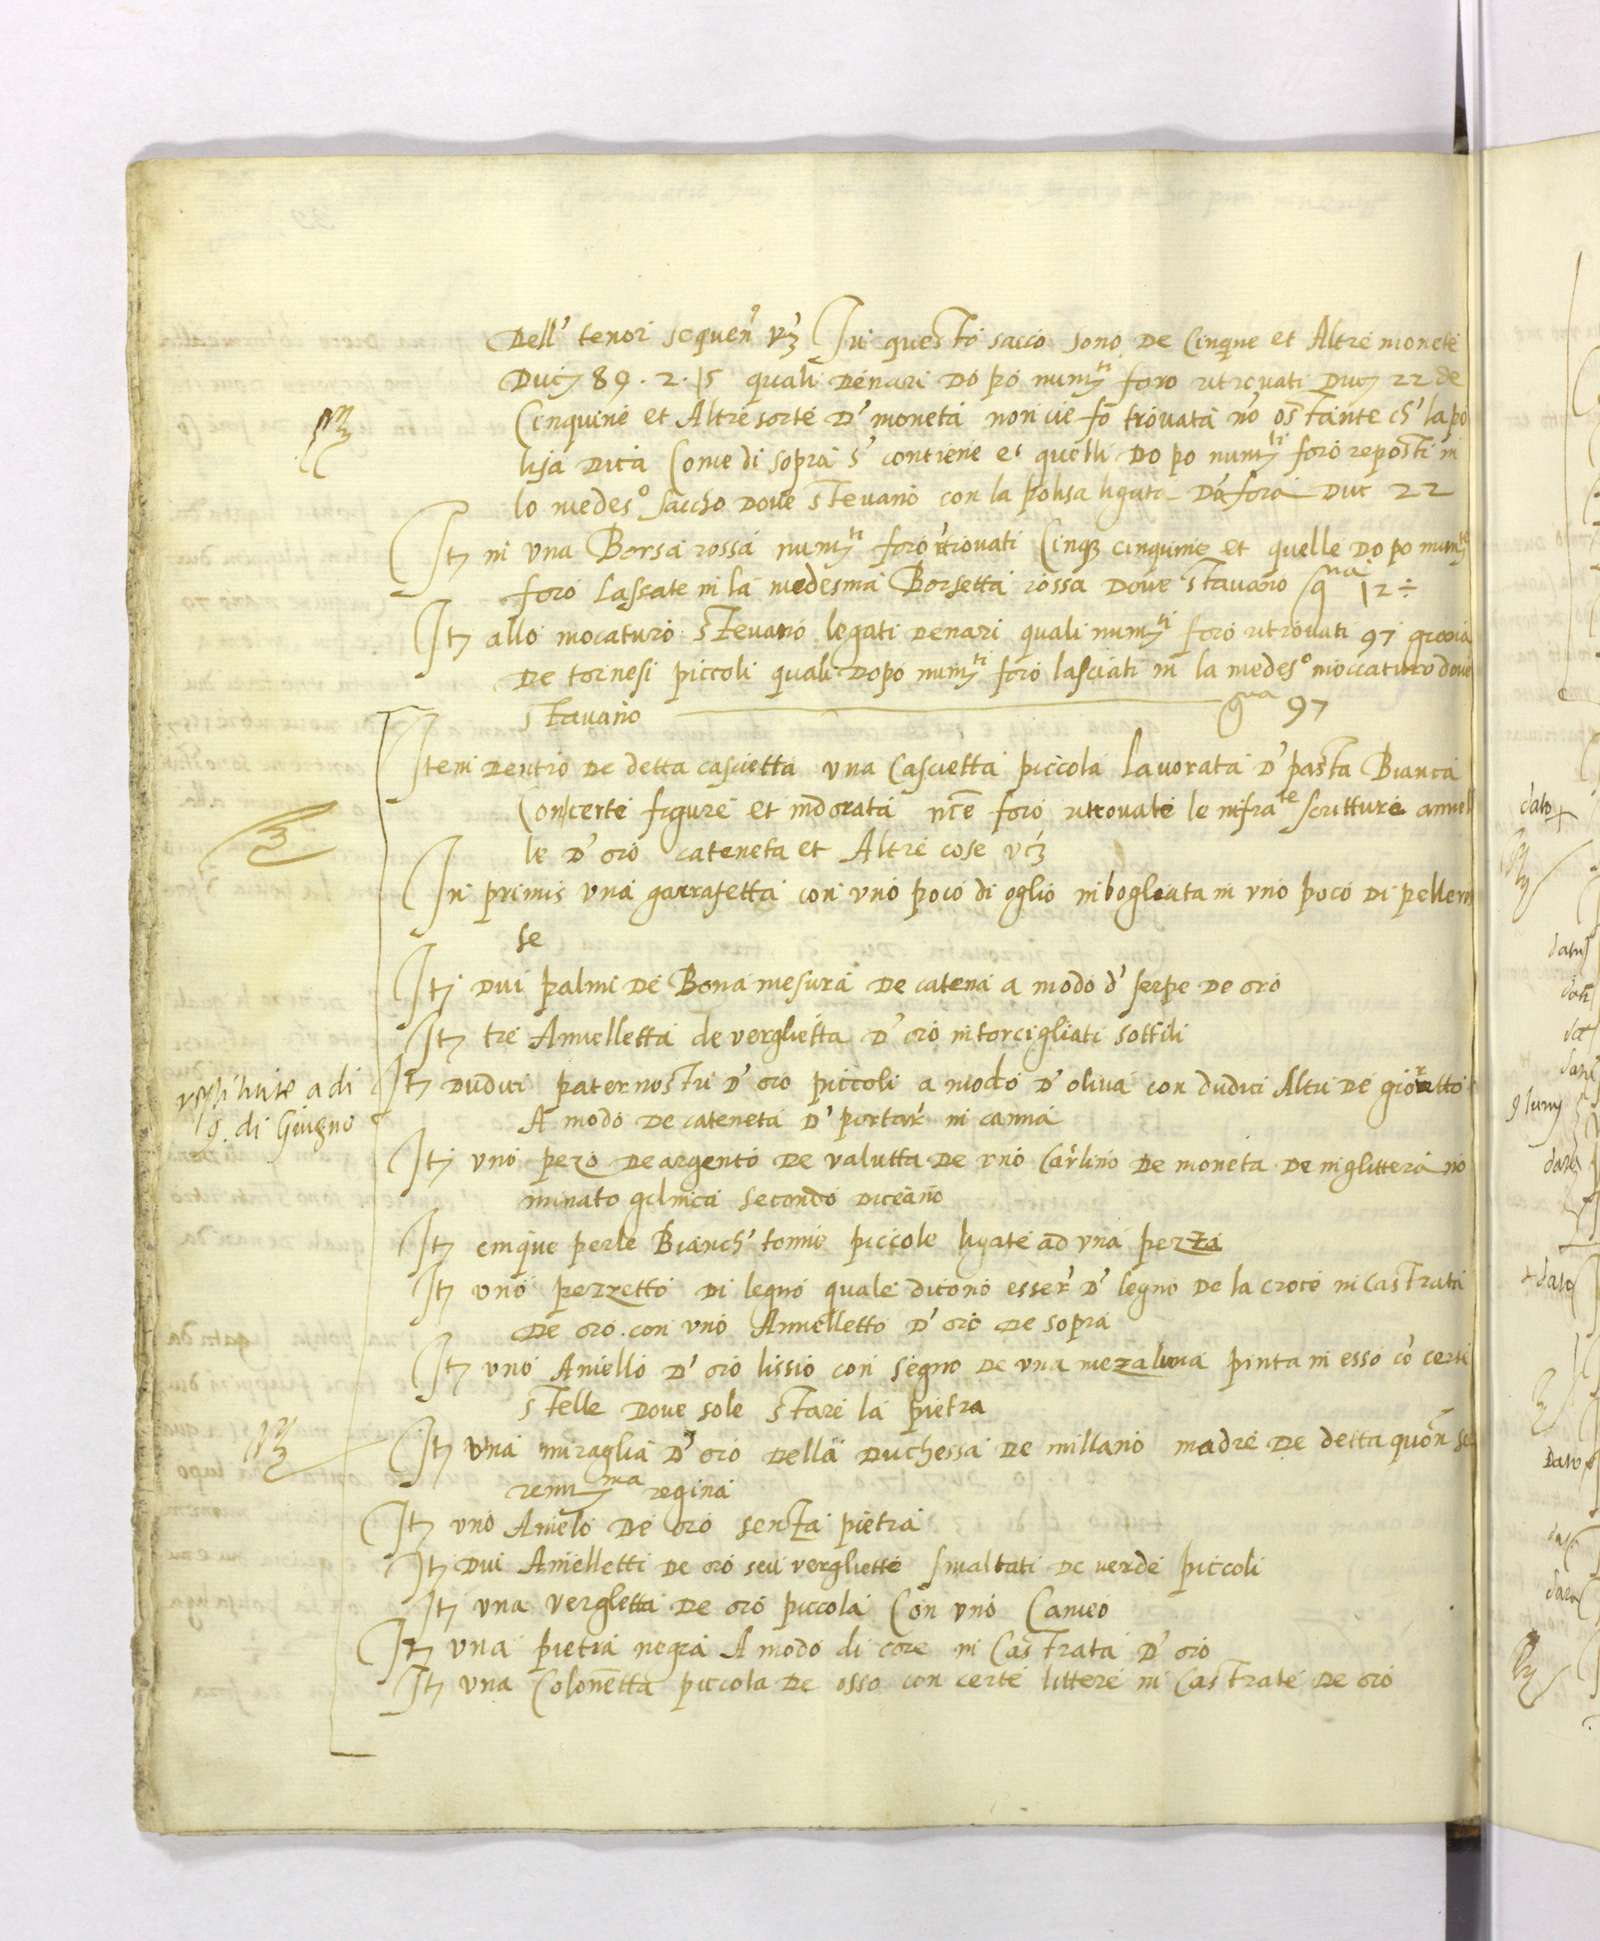 Dell' tenor sequen' vz In questo sacco sono De Cinquine et Altre monete
Duc 89 . 2 . 15 quali Denari Dopo numti foro ritrovati Duc 22 de
Cinquine et Altre sorte D' moneta non cie fo trovata no ostante ch' la po
lisa Dica Come di sopra s' contiene et quelli Dopo numti foro reposti in
lo medeso saccho Dove stevano con la polisa ligata Da fora Duc 22
It in una Borsa rossa numti foro ritrovati Cinque cinquine et quelle Dopo numte
foro Lassate in la medesma Borsetta rossa Dove stavano gna 12 ÷
It allo mocaturo stevano legati Denari quali numti foro ritrovati 97 grana
De tornesi piccoli quali Dopo numti foro lasciati in la medeso moccaturo dove
stavano gna 97
Item Dentro De detta cascietta una Cascietta piccola Lavorata D' pasta Bianca
Con certe figure et indorata foro ritrovate le infrate scritture aniel
le D' oro cateneta et Altre cose vz
In primis una garrafetta con uno poco di oglio in bogliata in uno poco Di pelleris
se
It Dui palmi De Bona mesura De catena a modo d' serpe De oro
It tre Anielletta de verghetta D' oro intorcigliati sottili
restituite a di
9. di Giugno
It Dudici paternostri D' oro piccoli a modo D' oliva con dudici Altri De
A modo De cateneta D' portar' in canna
It uno pezo De argento De valutta De uno Carlino De moneta De inglittera no
minato secondo Diceano
It cinque perle Bianch' tonne piccole ligate ad una pezza
It uno pezzetto Di legno quale dicono esser' D' legno De la croce in Castrati
De oro con uno Annelletto D' oro De sopra
It uno Aniello D' oro lissio con segno De una mezaluna pinta in esso co certi
stelle Dove sole stare la pietra
It una miraglia D' oro Della Duchessa De millano madre De detta quon se
renissma regina
It uno Anielo De oro senza pietra
It Dui Anielletti De oro seu verghette smaltati De verde piccoli
It una verghetta De oro piccola Con uno Cameo
It una pietra negra A modo di core in Castrata D' oro
It una Colonnetta piccola De osso con certe littere in Castrate De oro
dato
dato
dato
9 Iuny
dato
dato